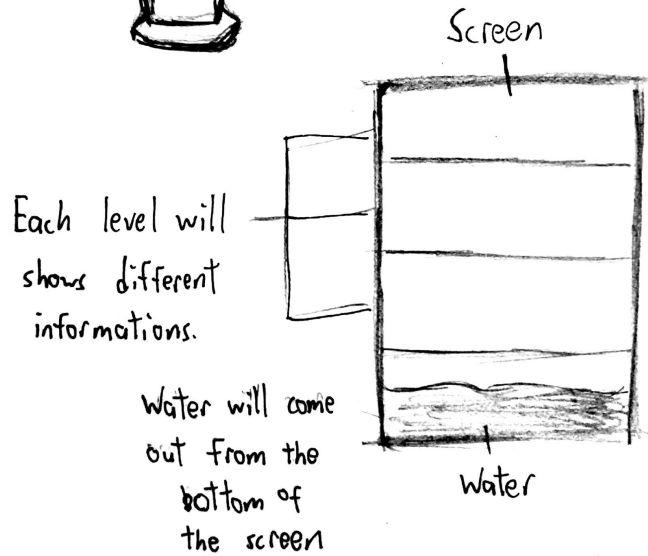 Screen
Each level will
shows different
informations.
Water will come
out from the
bottom of
the screen
Water